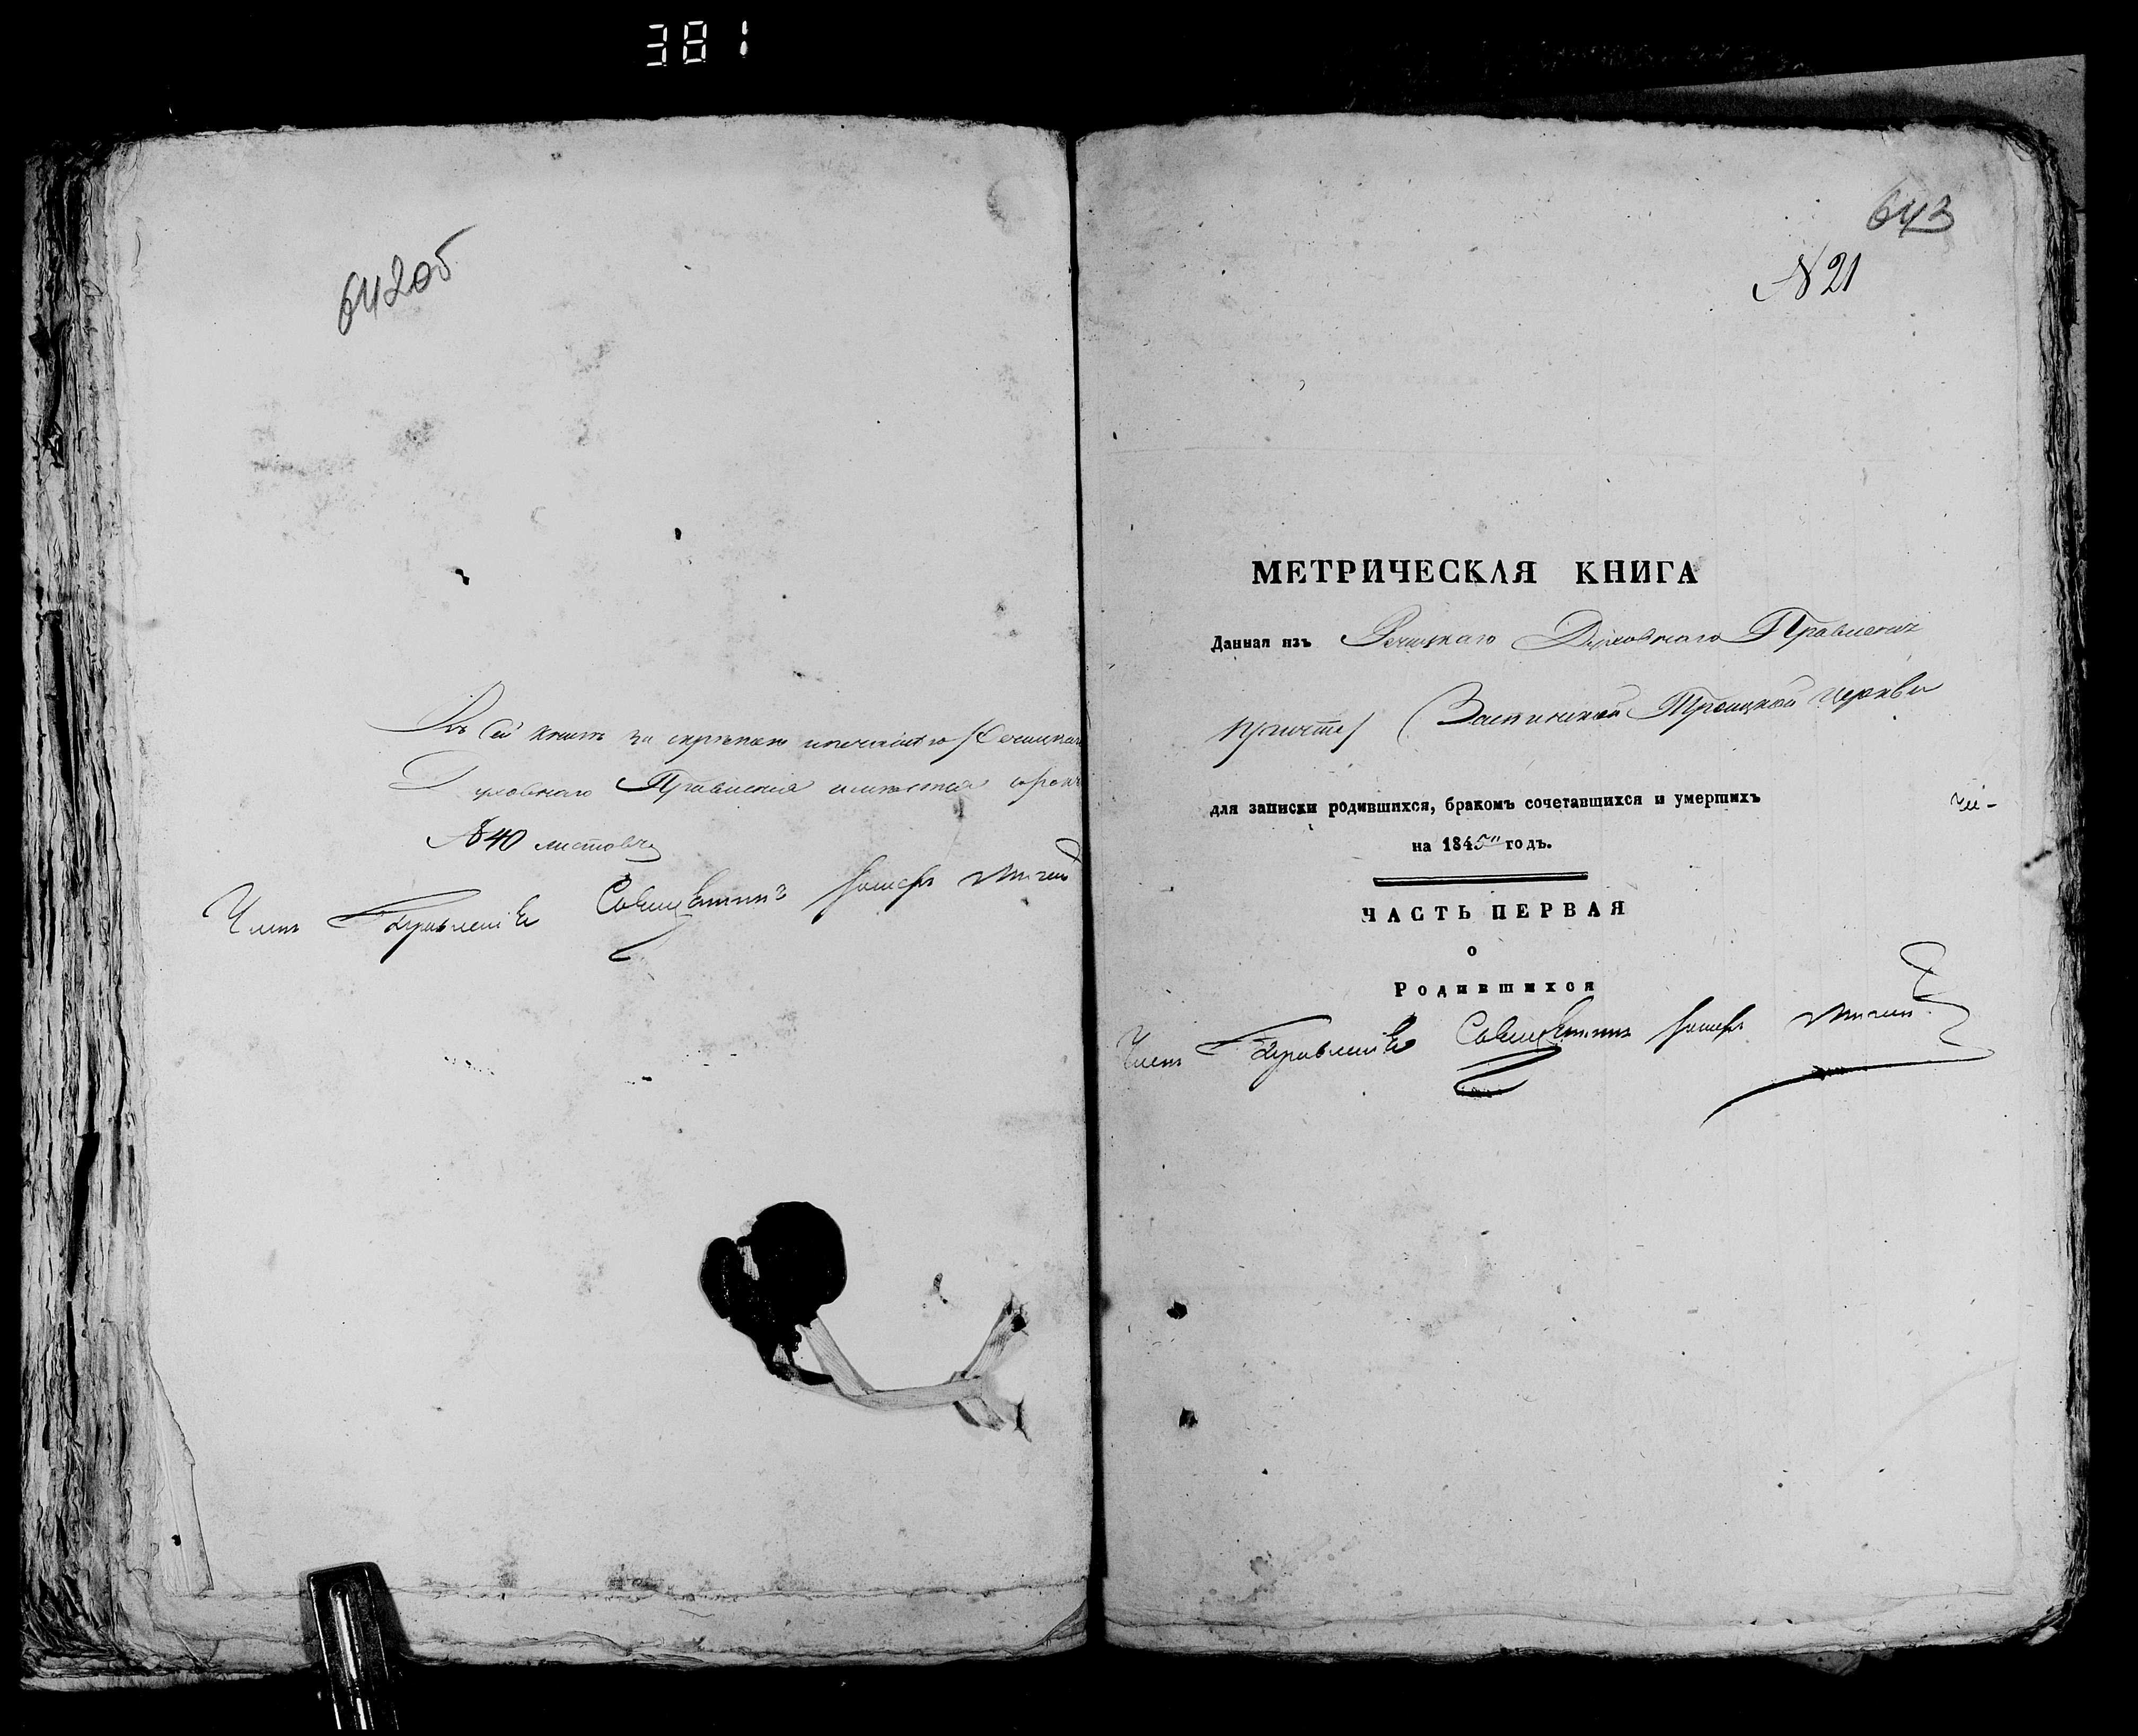 381
642об
Въ сей книгѣ за скрѣпою и печатью Речицкаго
Духовнаго Правленія листовъ
№ 40 листовъ
Членъ Правленія Священникъ
643
№ 21
МЕТРИЧЕСКАЯ КНИГА
Данная изъ Речицкаго Духовнаго Правленія
причту Троицкой церкви
для записки родившихся, бракомъ сочетавшихся и умершихъ
на 1845й годъ.
ЧАСТЬ ПЕРВАЯ
о
Родившихся
Членъ Правленія Священникъ